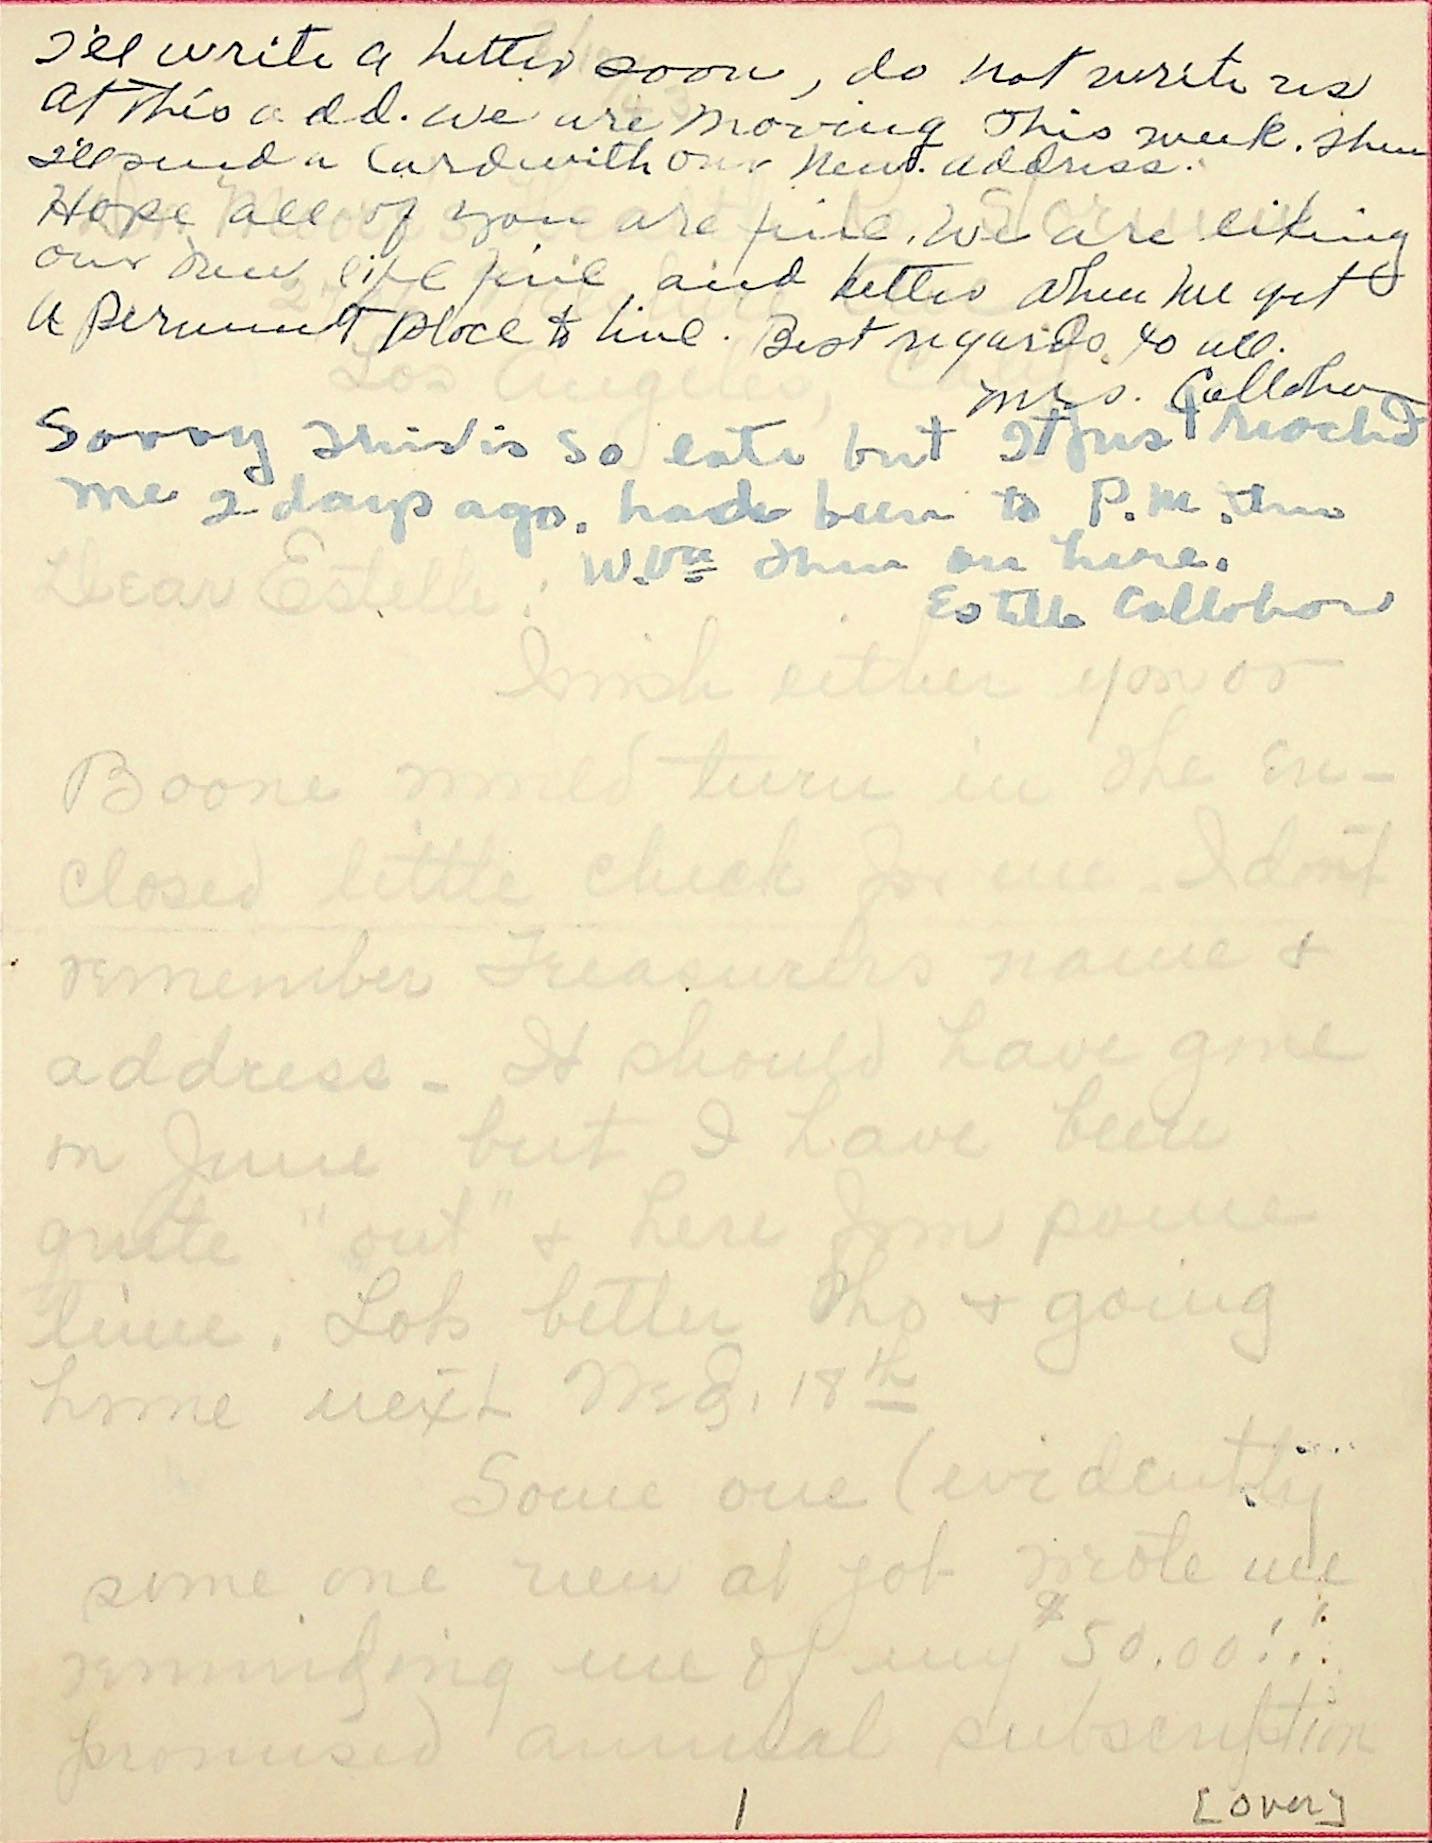 I'll write a letter soon, do not write us
at this add. we are moving this week. Then
I'll send a card with our new address.
Hope all of you are fine. We are liking
our new life fine, and better when we get
a permunt place to live. Best regards to all.
Mrs. Callohan
Sorry this is so late but It Jus t reached
me 2 days ago. had been to P.M. thru
W.Va then on here.
Estelle Callohan
Los Angeles, Calif
Dear Estelle:
I wish either you or
Boone would turn in the en-
closed little check for me. I don't
remember Treasurers name &
address - It should have gone
in June but I have been
quite "out" & here for some
time. Lots better tho & going
home next Wed. 18th
Some one (evidently
some one new at job wrote me
reminding me of my $50.00!!!
promised annual subscription
1 [over]